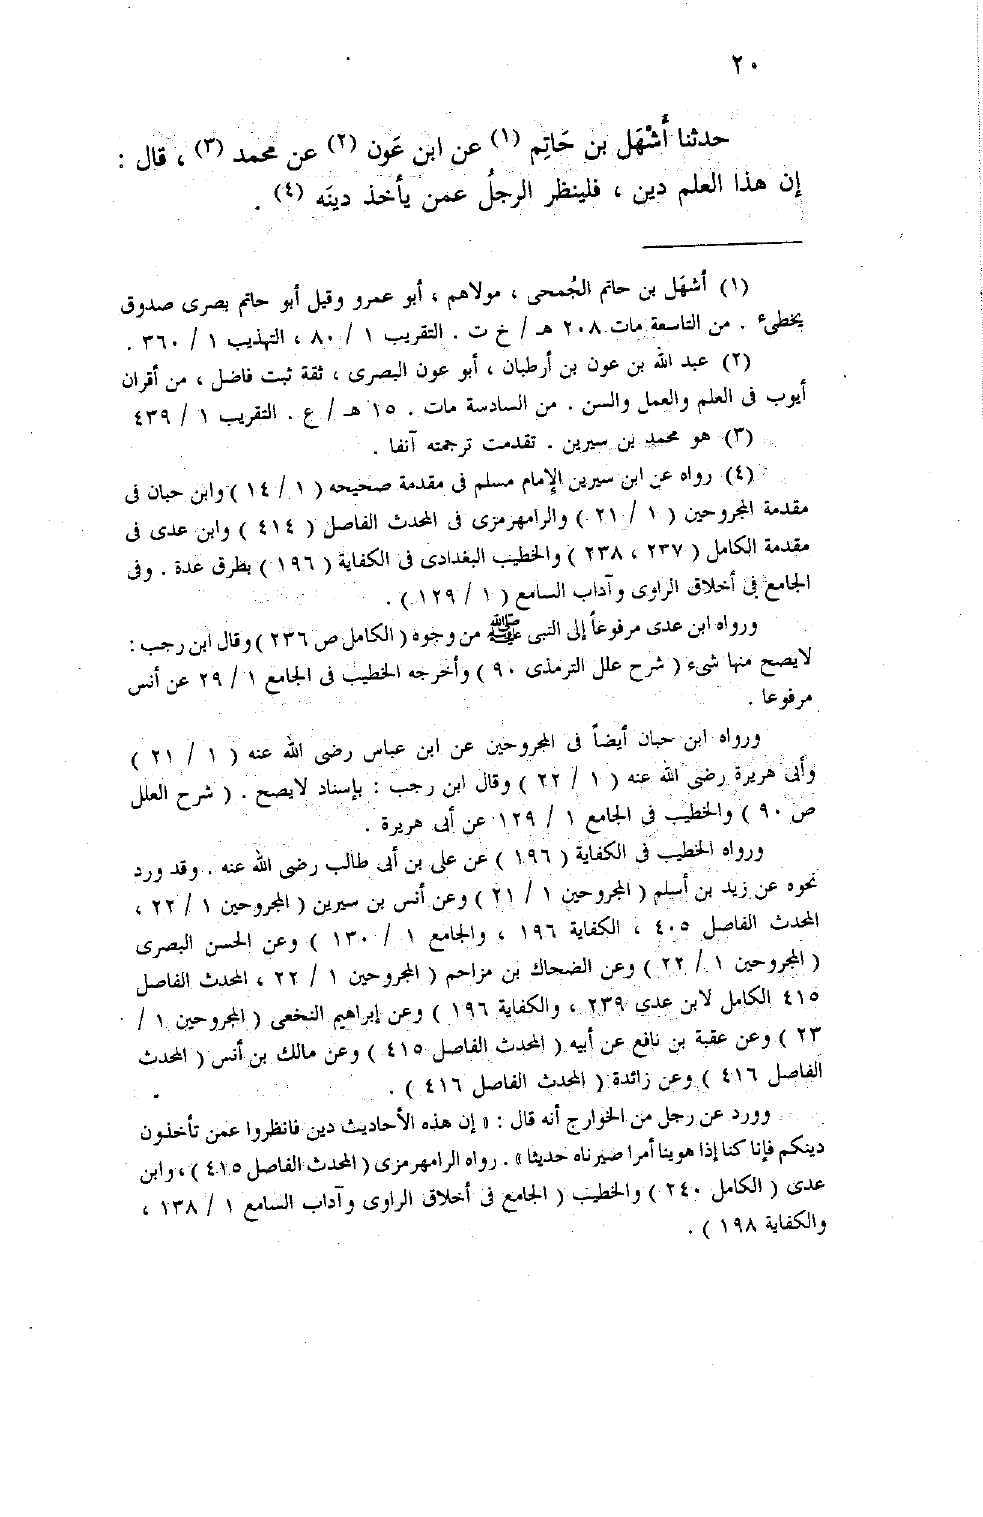 ٢٠
حدثنا أَشْهَل بن حَاتِم (١) عن ابن عَون (٢) عن محمد (٣) ، قال :
إن هذا العلم دين ، فلينظر الرجلُ عمن يأخذ دينَه (٤) .
(١) أشهَل بن حاتم الجُمحى ، مولاهم ، أبو عمرو وقيل أبو حاتم بصرى صدوق
يخطىء . من التاسعة مات ٢٠٨ هـ / خ ت . التقريب ١ / ٨٠ ، التهذيب ١ / ٣٦٠ .
(٢) عبد الله بن عون بن أرطبان ، أبو عون البصرى ، ثقة ثبت فاضل ، من أقران
أيوب فى العلم والعمل والسن . من السادسة مات . ١٥ هـ / ع . التقريب ١ / ٤٣٩
(٣) هو محمد بن سيرين . تقدمت ترجمته آنفا .
(٤) رواه عن ابن سيرين الإمام مسلم فى مقدمة صحيحه ( ١ / ١٤ ) وابن حبان فى
مقدمة المجروحين ( ١ / ٢١ ) والرامهرمزى فى المحدث الفاصل ( ٤١٤ ) وابن عدى فى
مقدمة الكامل ( ٢٣٧ ، ٢٣٨ ) والخطيب البغدادى فى الكفاية ( ١٩٦ ) بطرق عدة . وفى
الجامع فى أخلاق الراوى وآداب السامع ( ١ / ١٢٩ ) .
ورواه ابن عدى مرفوعاً إلى النبى ﷺ من وجوه ( الكامل ص ٢٣٦ ) وقال ابن رجب :
لايصح منها شىء ( شرح علل الترمذى ٩٠ ) وأخرجه الخطيب فى الجامع ١ / ٢٩ عن أنس
مرفوعا .
ورواه ابن حبان أيضاً فى المجروحين عن ابن عباس رضى الله عنه ( ١ / ٢١ )
وأبى هريرة رضى الله عنه ( ١ / ٢٢ ) وقال ابن رجب : بإسناد لايصح . ( شرح العلل
ص ٩٠ ) والخطيب فى الجامع ١ / ١٢٩ عن أبى هريرة .
ورواه الخطيب فى الكفاية ( ١٩٦ ) عن على بن أبى طالب رضى الله عنه . وقد ورد
نحوه عن زيد بن أسلم ( المجروحين ١ / ٢١ ) وعن أنس بن سيرين ( المجروحين ١ / ٢٢ ،
المحدث الفاصل ٤٠٥ ، الكفاية ١٩٦ ، والجامع ١ / ١٣٠ ) وعن الحسن البصرى
( المجروحين ١ / ٢٢ ) وعن الضحاك بن مزاحم ( المجروحين ١ / ٢٢ ، المحدث الفاصل
٤١٥ الكامل لابن عدى ٢٣٩ ، والكفاية ١٩٦ ) وعن إبراهيم النخعى ( المجروحين ١ /
٢٣ ) وعن عقبة بن نافع عن أبيه ( المحدث الفاصل ٤١٥ ) وعن مالك بن أنس ( المحدث
الفاصل ٤١٦ ) وعن زائدة ( المحدث الفاصل ٤١٦ ) .
وورد عن رجل من الخوارج أنه قال : « إن هذه الأحاديث دين فانظروا عمن تأخذون
دينكم فإنا كنا إذا هوينا أمرا صيرناه حديثا » . رواه الرامهرمزى ( المحدث الفاصل ٤١٥ ) ، وابن
عدى ( الكامل ٢٤٠ ) والخطيب ( الجامع فى أخلاق الراوى وآداب السامع ١ / ١٣٨ ،
والكفاية ١٩٨ ) .